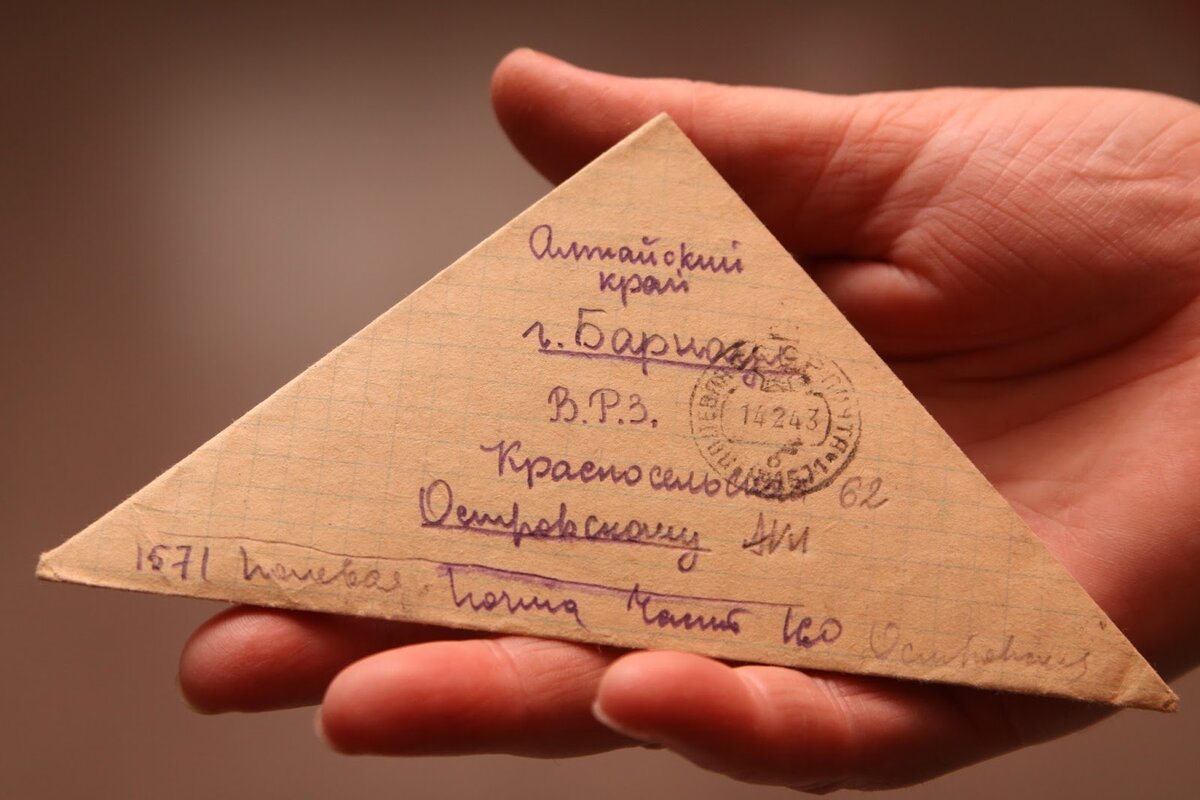 Алтайский
край
г. Барнаул
В.Р.З.
ПОЛЕВАЯ ПОЧТА
14 2 43
Красносельская 62
Островскому
1571 Полевая Почта Часть 160